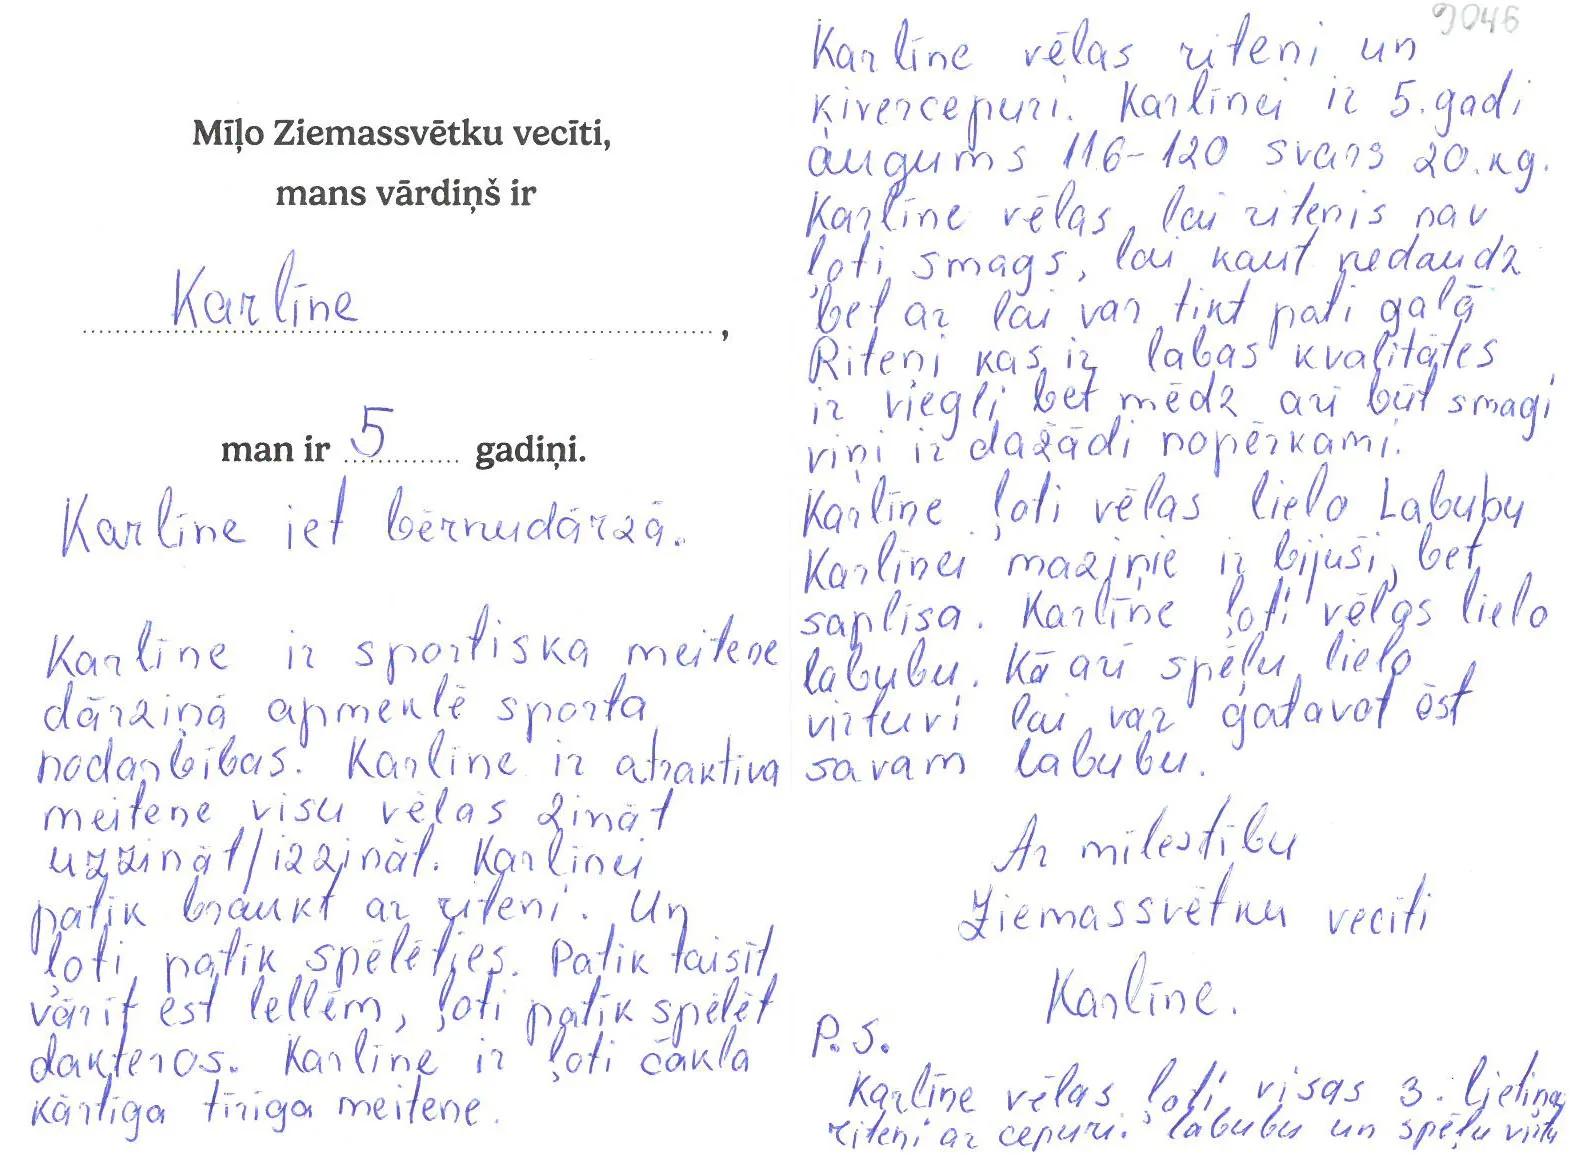 Mīļo Ziemassvētku vecīti,
mans vārdiņš ir
Karlīne,
man ir 5 gadiņi.
Karlīne iet bērnudārzā.
Karlīne ir sportiska meitene
dārziņā apmeklē sporta
nodarbības. Karlīne ir atraktīva
meitene visu vēlas zināt
uzzināt/izzināt. Karlīnei
patīk braukt ar riteni. Un
ļoti patīk spēlēties. Patīk taisīt
vārīt ēst lellēm, ļoti patīk spēlēt
dakteros. Karlīne ir ļoti čakla
kārtīga tīrīga meitene.
9046
Karlīne vēlas riteni un
ķivercepuri. Karlīnei ir 5. gadi
augums 116-120 svars 20.kg.
Karlīne vēlas, lai ritenis nav
ļoti smags, lai kaut nedaudz
bet ar lai var tikt pati galā
Riteņi kas ir labas kvalitātes
ir viegli bet mēdz arī būt smagi
viņi ir dažādi nopērkami.
Karlīne ļoti vēlas lielo Labubu
Karlīnei maziņie ir bijuši, bet
saplīsa. Karlīne ļoti vēlas lielo
labubu. Kā arī spēļu lielo
virtuvi lai var gatavot ēst
savam labubu.
Ar mīlestību
Ziemassvētku vecīti
Karlīne.
P.S.
Karlīne vēlas ļoti visas 3. lietiņas
riteni ar cepuri. labubu un spēļu virtu